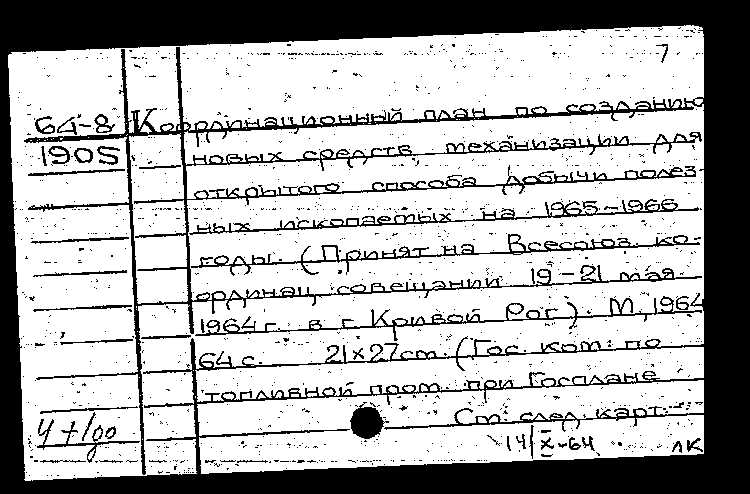 7
64-8 Координационный план по созданию
1905 новых средств механизации для
открытого способа добычи полез-
ных ископаемых на 1965-1966
годы. (Принят на Всесоюз. ко-
ординац. совещании 19-21 мая
1964 г. в г. Кривой Рог). М, 1964
64 с. 21×27 см. (Гос. ком. по
топливной пром. при Госплане
См. след. карт.
14/X-64 ЛК